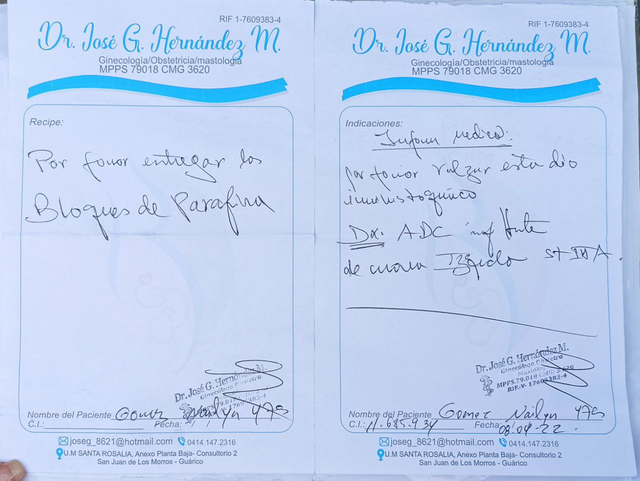 RIF 1-7609383-4
Dr. José G. Hernández M.
Ginecología/Obstetricia/mastología
MPPS 79018 CMG 3620
Recipe:
Por favor entregar los
Bloques de Parafina
Dr. José G. Hernández M.
Nombre del Paciente Gomez 47a
C.I.: Fecha:
joseg_8621@hotmail.com 0414.147.2316
U.M SANTA ROSALIA, Anexo Planta Baja- Consultorio 2
San Juan de Los Morros - Guárico
RIF 1-7609383-4
Dr. José G. Hernández M.
Ginecología/Obstetricia/mastología
MPPS 79018 CMG 3620
Indicaciones:
Infome medico:
por favor estudio
inmunohistoquimico
Dx: ADC
de mama Izquierda st
Dr. José G. Hernández M.
Nombre del Paciente Gomez 47a
C.I.: 11.685.934 Fecha: 08.04-22.
joseg_8621@hotmail.com 0414.147.2316
U.M SANTA ROSALIA, Anexo Planta Baja- Consultorio 2
San Juan de Los Morros - Guárico